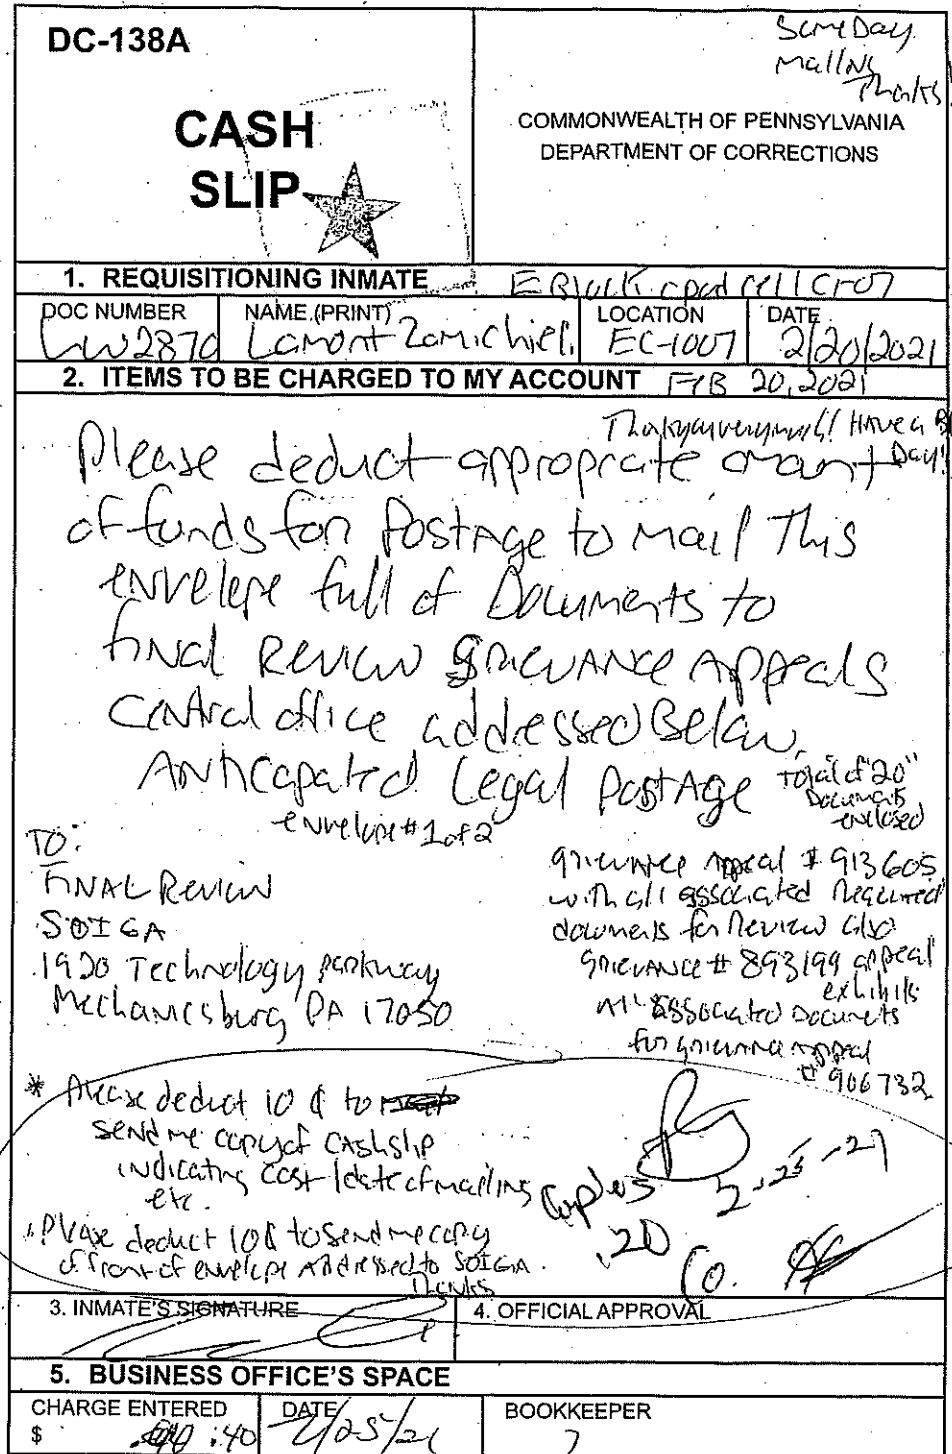 DC-138A
CASH
SLIP
Same Day
Mailing
Thanks
COMMONWEALTH OF PENNSYLVANIA
DEPARTMENT OF CORRECTIONS
1. REQUISITIONING INMATE E Block cpod cell
DOC NUMBER
NAME (PRINT)
LOCATION
DATE
LW2870
Lamont Zamichieli
EC-1007
2/20/2021
2. ITEMS TO BE CHARGED TO MY ACCOUNT FEB 20, 2021
Thankyouverymuch! Have a
Day!
Please deduct appropriate amount
of funds for Postage to mail This
envelope full of Documents to
final Review grievance Appeals
Central office addressed Below.
Anticapated Legal Postage
Total of "20"
Documents
enclosed
envelope # 1 of 2
TO:
FINAL Review
SOIGA
1920 Technology parkway
Mechanicsburg PA 17050
grievance Appeal # 913605
with all associated Required
documents for Review also
grievance # 893199 appeal
exhibits
All associated Documents
for grievance appeal
# 906732
* Please deduct 10 ¢ to
send me copy of cashslip
indicating cost/date of mailing
etc.
Please deduct 10¢ to send me copy
of front of envelope Addressed to SOIGA.
Thanks
Copies
.20
3. INMATE'S SIGNATURE
4. OFFICIAL APPROVAL
5. BUSINESS OFFICE'S SPACE
CHARGE ENTERED
DATE
BOOKKEEPER
$ .40
2/25/21